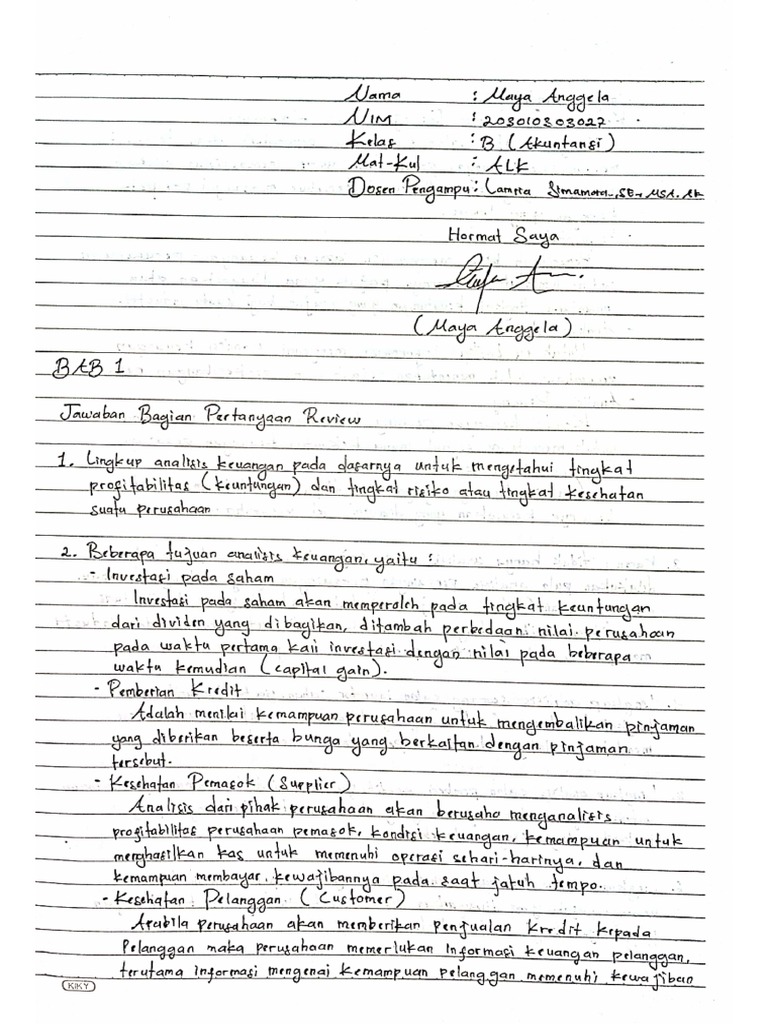 Nama : Maya Anggela
NIM : 203010303027
Kelas : B (Akuntansi)
Mat-Kul : ALK
Dosen Pengampu : Lamria Simamora, SE., MSA. Ak
Hormat Saya
(Maya Anggela)
BAB 1
Jawaban Bagian Pertanyaan Review
1. Lingkup analisis keuangan pada dasarnya untuk mengetahui tingkat
profitabilitas (keuntungan) dan tingkat risiko atau tingkat kesehatan
suatu perusahaan
2. Beberapa tujuan analisis keuangan, yaitu :
- Investasi pada saham
Investasi pada saham akan memperoleh pada tingkat keuntungan
dari dividen yang dibagikan, ditambah perbedaan nilai perusahaan
pada waktu pertama kali investasi dengan nilai pada beberapa
waktu kemudian (capital gain).
- Pemberian Kredit
Adalah menilai kemampuan perusahaan untuk mengembalikan pinjaman
yang diberikan beserta bunga yang berkaitan dengan pinjaman
tersebut.
- Kesehatan Pemasok (Supplier)
Analisis dari pihak perusahaan akan berusaha menganalisis
profitabilitas perusahaan pemasok, kondisi keuangan, kemampuan untuk
menghasilkan kas untuk memenuhi operasi sehari-harinya, dan
kemampuan membayar kewajibannya pada saat jatuh tempo.
- Kesehatan Pelanggan (Customer)
Apabila perusahaan akan memberikan penjualan kredit kepada
Pelanggan maka perusahaan memerlukan informasi keuangan pelanggan,
terutama informasi mengenai kemampuan pelanggan memenuhi kewajiban
KIKY